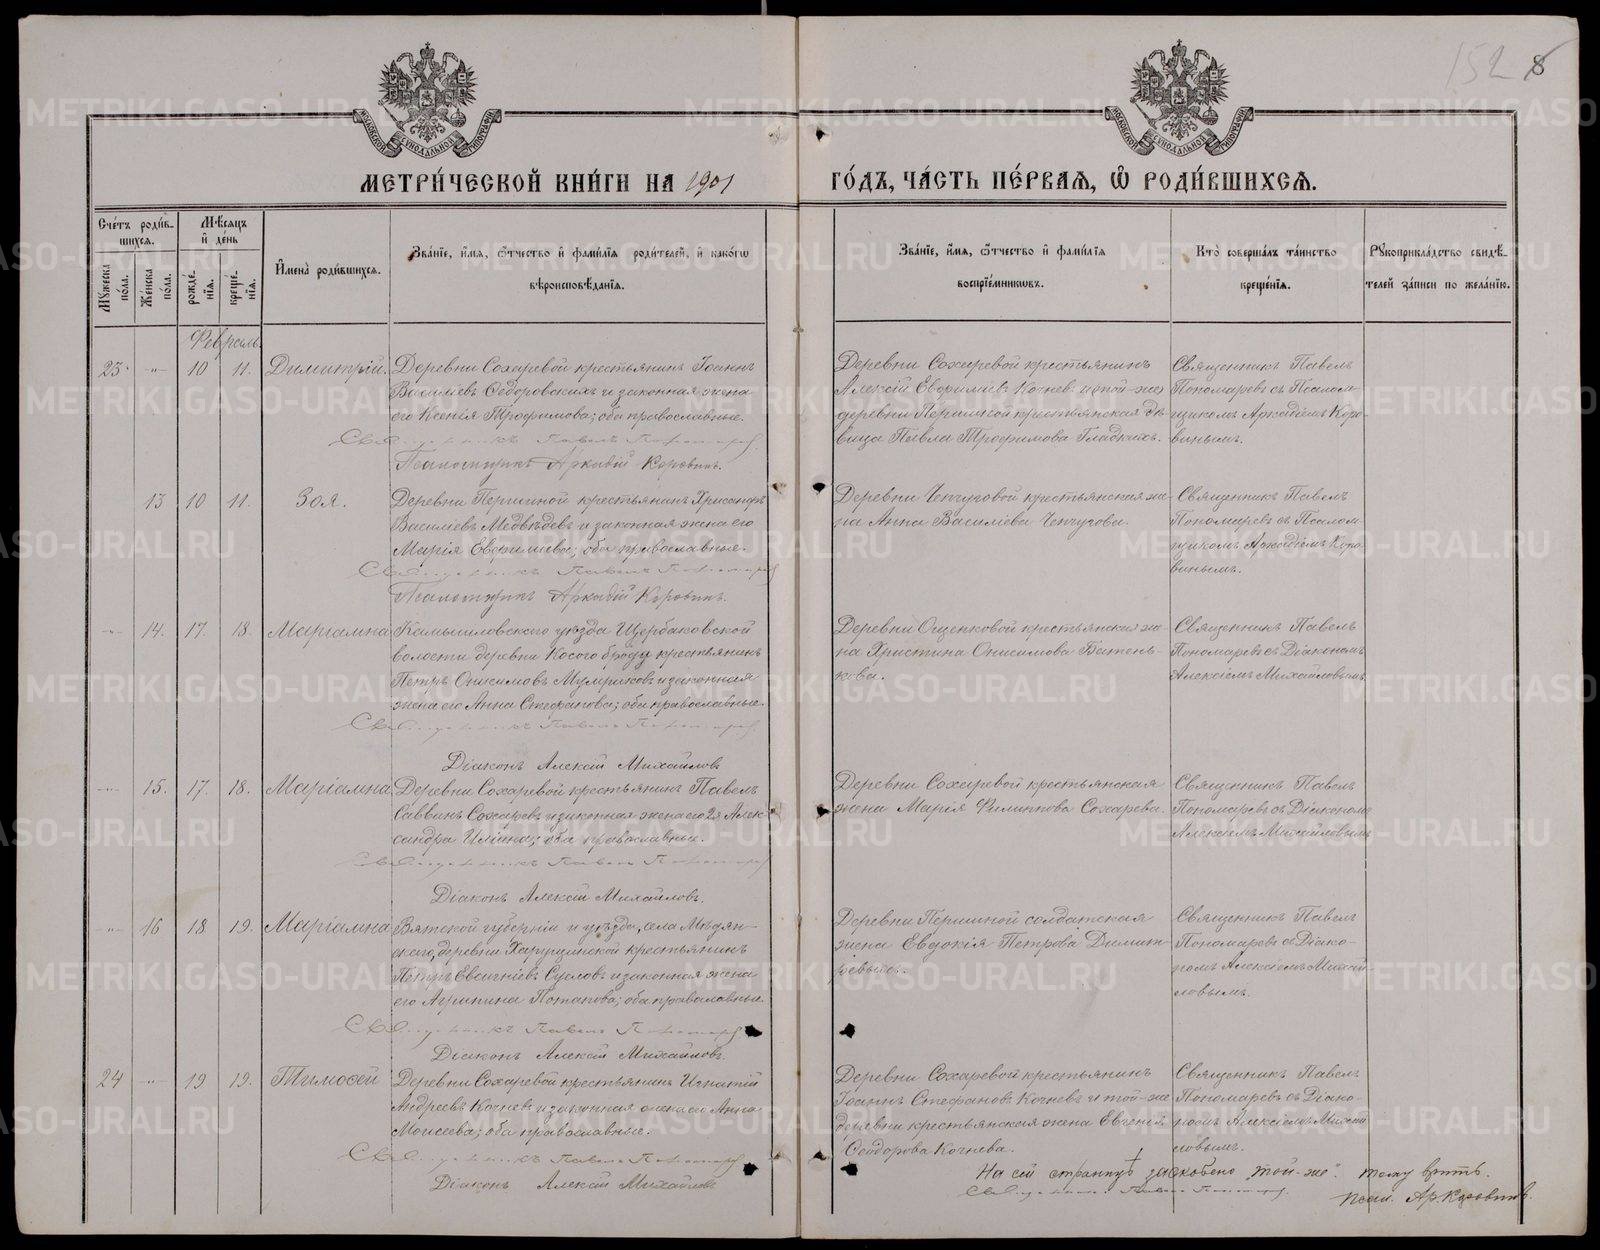 152 8
МЕТРИ́ЧЕСКОЙ КНИ́ГИ НА 1901 ГО́ДЪ, ЧА́СТЬ ПЕ́РВАЯ, Ѡ РОДИ́ВШИХСЯ.
Сче́тъ роди́в-
шихся.
Мѣ́сяцъ
и҆ де́нь
Му́жеска по́ла.
Же́нска по́ла.
рожде́-
нїя.
креще́-
нїя.
И҆мена̀ роди́вшихся.
Зва́нїе, и҆́мя, ѻ҆́тчество и҆ фами́лїя роди́телей, и҆ како́гѡ
вѣроисповѣ́данїя.
Зва́нїе, и҆́мя, ѻ҆́тчество и҆ фами́лїя
воспрїе́мникѡвъ.
Кто̀ соверша́лъ та́инство
креще́нїя.
Рꙋкоприкла́дство свидѣ́-
телей за́писи по жела́нїю.
Февраль.
23. -"- 10 11. Димитрій.
Деревни Сохаревой крестьянинъ Іоаннъ
Василіевъ Ѳедоровскихъ и законная жена
его Ксенія Трофимова; оба православные.
Священникъ Павелъ Пономаревъ
Псаломщикъ Аркадій Коровинъ.
Деревни Сохаревой крестьянинъ
Алексій Евфиміевъ Кочневъ и той-же
деревни Першиной крестьянская дѣ-
вица Павла Трофимова Гладкихъ.
Священникъ Павелъ
Пономаревъ съ Псалом-
щикомъ Аркадіемъ Коро-
винымъ.
13 10 11. Зоя.
Деревни Першиной крестьянинъ Хрисанфъ
Василіевъ Медвѣдевъ и законная жена его
Марія Евфиміева; оба православные.
Священникъ Павелъ Пономаревъ
Псаломщикъ Аркадій Коровинъ.
Деревни Ченчуговой крестьянская же-
на Анна Василіева Ченчугова.
Священникъ Павелъ
Пономаревъ съ Псалом-
щикомъ Аркадіемъ Коро-
винымъ.
-"- 14. 17. 18. Маріамна
Камышловскаго уѣзда Щербаковской
волости деревни Косого броду крестьянинъ
Петръ Онисимовъ и законная
жена его Анна Стефанова; оба православные.
Священникъ Павелъ Пономаревъ
Діаконъ Алексій Михайловъ
Деревни Ощепковой крестьянская же-
на Христина Онисимова Батень-
кова.
Священникъ Павелъ
Пономаревъ съ Діакономъ
Алексіемъ Михайловымъ
-"- 15. 17. 18. Маріамна
Деревни Сохаревой крестьянинъ Павелъ
Саввинъ Сохаревъ и законная жена его 2я Алек-
сандра Иліина; оба православные.
Священникъ Павелъ Пономаревъ
Діаконъ Алексій Михайловъ.
Деревни Сохаревой крестьянская
жена Марія Филиппова Сохарева.
Священникъ Павелъ
Пономаревъ съ Діакономъ
Алексіемъ Михайловымъ
-"- 16 18 19. Маріамна
Вятской губерніи и уѣзда, села Мѣдян-
скаго, деревни крестьянинъ
Петръ Евсигніевъ и законная жена
его Агрипина Потапова; оба православные.
Священникъ Павелъ Пономаревъ
Діаконъ Алексій Михайловъ.
Деревни Першиной солдатская
жена Евдокія Петрова Димит-
ріевыхъ.
Священникъ Павелъ
Пономаревъ съ Діако-
номъ Алексіемъ Михай-
ловымъ.
24 -"- 19 19. Тимоѳей
Деревни Сохаревой крестьянинъ Игнатій
Андреевъ Кочневъ и законная жена его Анна
Моисеева; оба православные.
Священникъ Павелъ Пономаревъ
Діаконъ Алексій Михайловъ
Деревни Сохаревой крестьянинъ
Іоаннъ Стефановъ Кочневъ и той-же
деревни крестьянская жена Евгенія
Ѳеодорова Кочнева.
Священникъ Павелъ
Пономаревъ съ Діако-
номъ Алексіемъ Михай-
ловымъ.
На сей страницѣ заскоблено „той-же“. тому вѣрить.
Священникъ Павелъ Пономаревъ.
Псал. Ар. Коровинъ.
METRIKI.GASO-URAL.RU